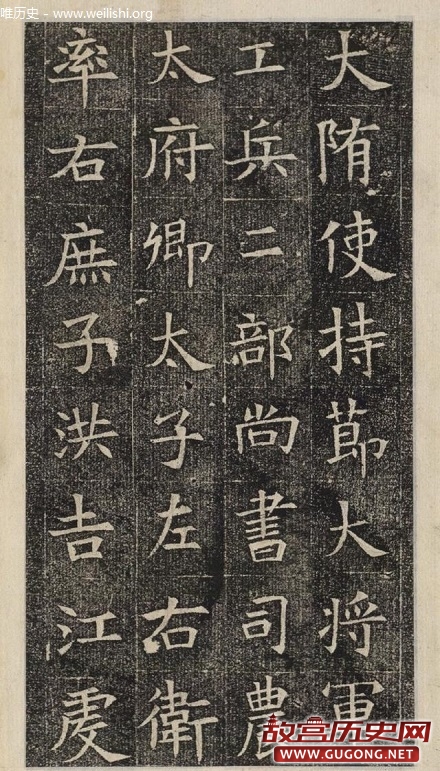 唯历史 - www.weilishi.org
大隋使持節大将軍
工兵二部尚書司農
太府卿太子左右衛
率右庶子洪吉江虔
故宫历史网
WWW.GUGONG.NET